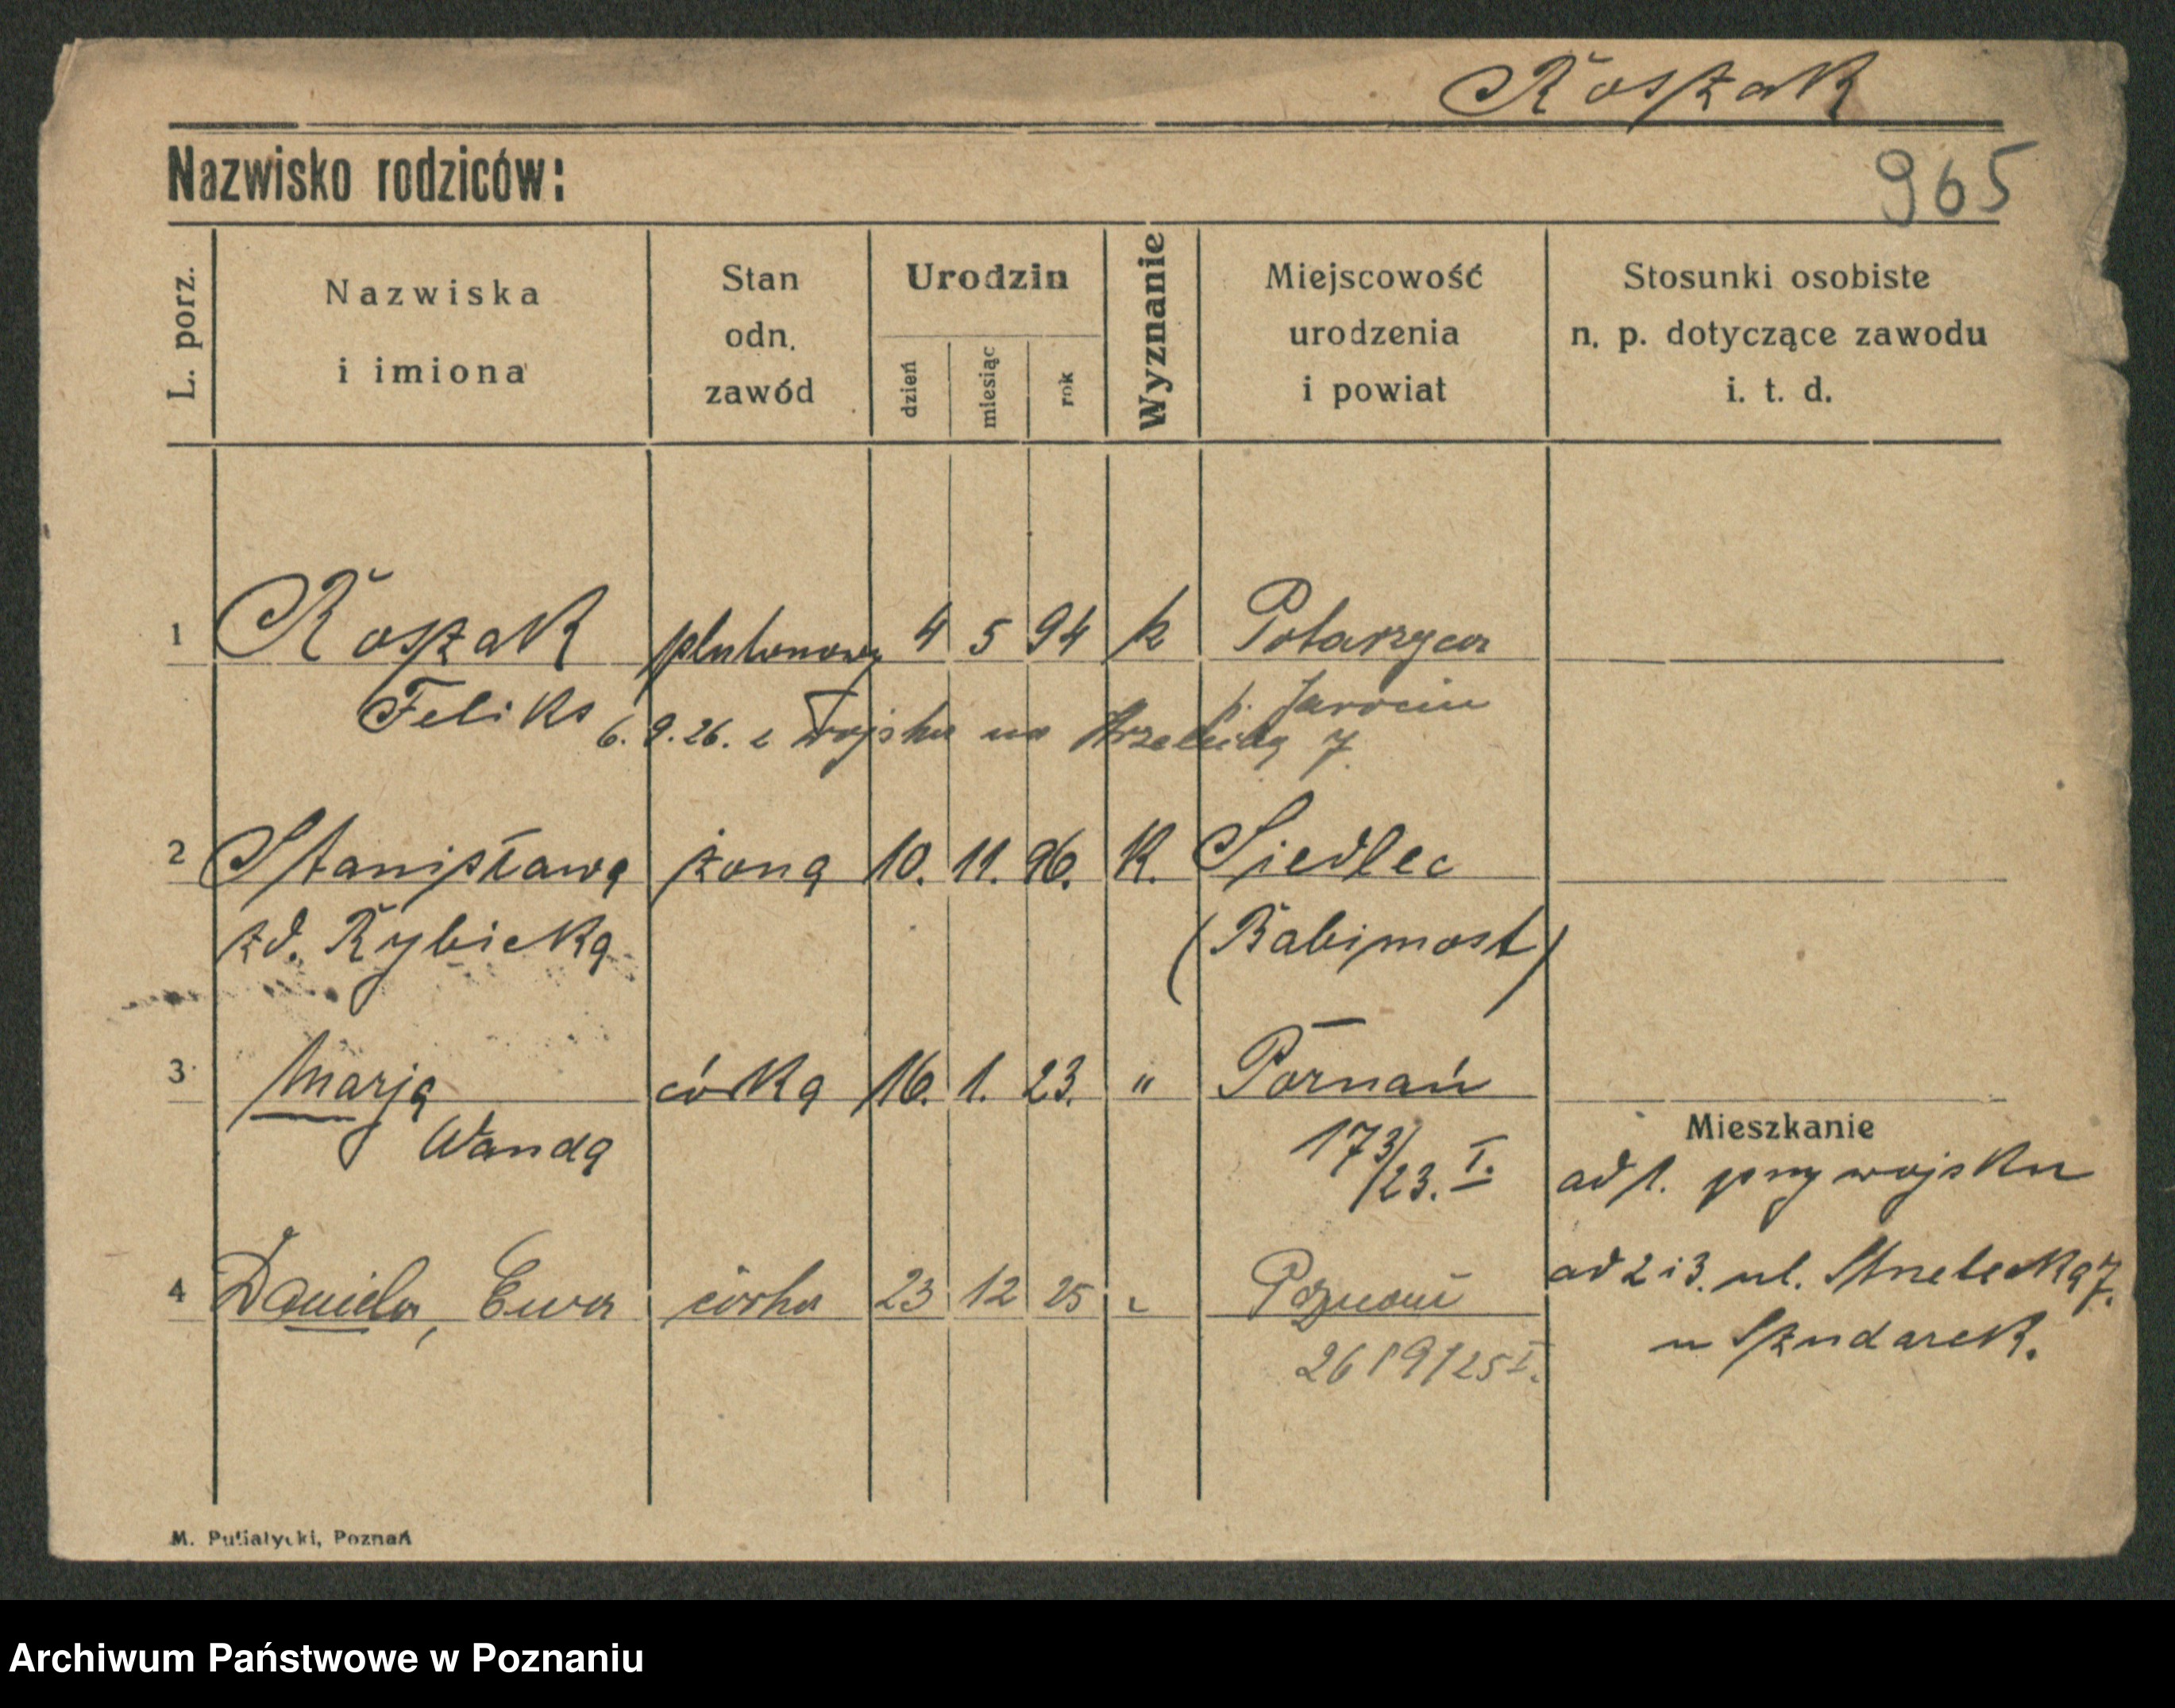 Koszak
Nazwisko rodziców:
965
L. porz.
Nazwiska
i imiona
Stan
odn.
zawód
Urodzin
dzień
miesiąc
rok
Wyznanie
Miejscowość
urodzenia
i powiat
Stosunki osobiste
n. p. dotyczące zawodu
i. t. d.
1 Koszak plutonowy 4 5 94 k Potarzyca
Feliks p. Jarocin
6. 9. 26. z wojska na Strzelecką 7.
2 Stanisława żona 10. 11. 96. K. Siedlec
zd. Rybicka (Babimost)
3 Marja córka 16. 1. 23. " Poznań
Wanda 173/23. I.
Mieszkanie
ad 1. przy wojsku
4 Daniela, Ewa córka 23 12 25 " Poznań
2619/25 I.
ad 2 i 3. ul. Strzelecka 7.
u Szudarek.
M. Putiatycki, Poznań
Archiwum Państwowe w Poznaniu